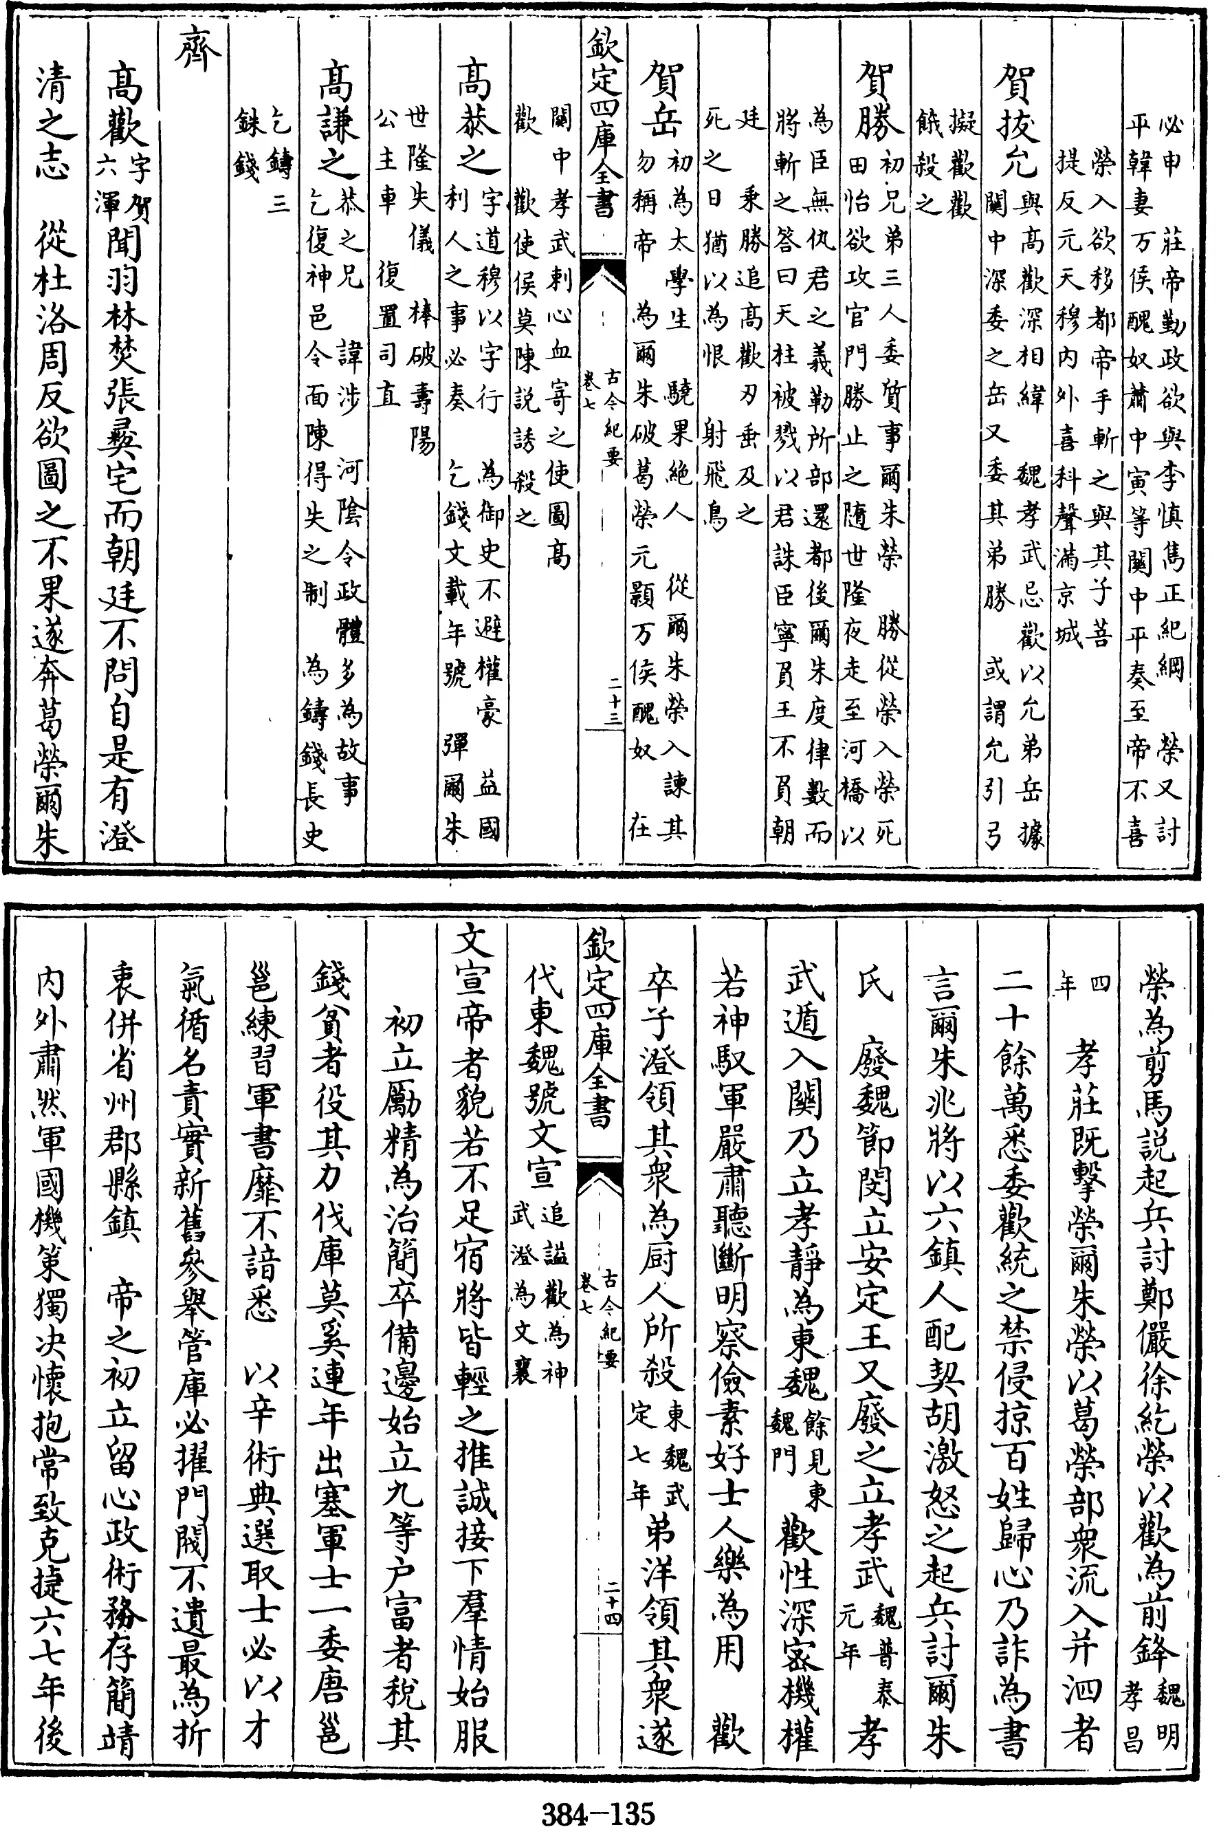 必申　莊帝勤政欲與李慎雋正紀綱　榮又討
平韓妻万俟醜奴蕭中寅等關中平奏至帝不喜
榮入欲移都帝手斬之與其子菩
提反元天穆內外喜科聲滿京城
賀拔允與高歡深相緯　魏孝武忌歡以允弟岳據
關中深委之岳又委其弟勝　或謂允引弓
擬歡歡
餓殺之
賀勝初兄弟三人委質事爾朱榮　勝從榮入榮死
田怡欲攻官門勝止之隨世隆夜走至河橋以
為臣無仇君之義勒所部還都後爾朱度律數而
將斬之答曰天柱被戮以君誅臣寧負王不負朝
廷　乘勝追高歡刃垂及之
死之日猶以為恨　射飛鳥
賀岳初為太學生　驍果絕人　從爾朱榮入諫其
勿稱帝　為爾朱破葛榮元顥万俟醜奴　在
欽定四庫全書
古今紀要
卷七
二十三
關中孝武刺心血寄之使圖高
歡　歡使侯莫陳說誘殺之
高恭之字道穆以字行　為御史不避權豪　益國
利人之事必奏　乞錢文載年號　彈爾朱
世隆失儀　棒破壽陽
公主車　復置司直
高謙之恭之兄　諱涉　河陰令政體多為故事
乞復神邑令面陳得失之制　為鑄錢長史
乞鑄三
銖錢
齊
高歡字賀六渾聞羽林焚張彝宅而朝廷不問自是有澄
清之志　從杜洛周反欲圖之不果遂奔葛榮爾朱
榮為剪馬說起兵討鄭儼徐紇榮以歡為前鋒魏明孝昌
四年　孝莊既擊榮爾朱榮以葛榮部衆流入并泗者
二十餘萬悉委歡統之禁侵掠百姓歸心乃詐為書
言爾朱兆將以六鎮人配契胡激怒之起兵討爾朱
氏　廢魏節閔立安定王又廢之立孝武魏普泰元年　孝
武遁入關乃立孝靜為東魏餘見東魏門　歡性深密機權
若神馭軍嚴肅聽斷明察儉素好士人樂為用　歡
卒子澄領其衆為厨人所殺東魏武定七年弟洋領其衆遂
欽定四庫全書
古今紀要
卷七
二十四
代東魏號文宣追謚歡為神武澄為文襄
文宣帝者貌若不足宿將皆輕之推誠接下羣情始服
初立勵精為治簡卒備邊始立九等户富者稅其
錢貧者役其力伐庫莫奚連年出塞軍士一委唐邕
邕練習軍書靡不諳悉　以辛術典選取士必以才
氣循名責實新舊參舉管庫必擢門閥不遺最為折
衷併省州郡縣鎮　帝之初立留心政術務存簡靖
內外肅然軍國機策獨决懷抱常致克捷六七年後
384-135